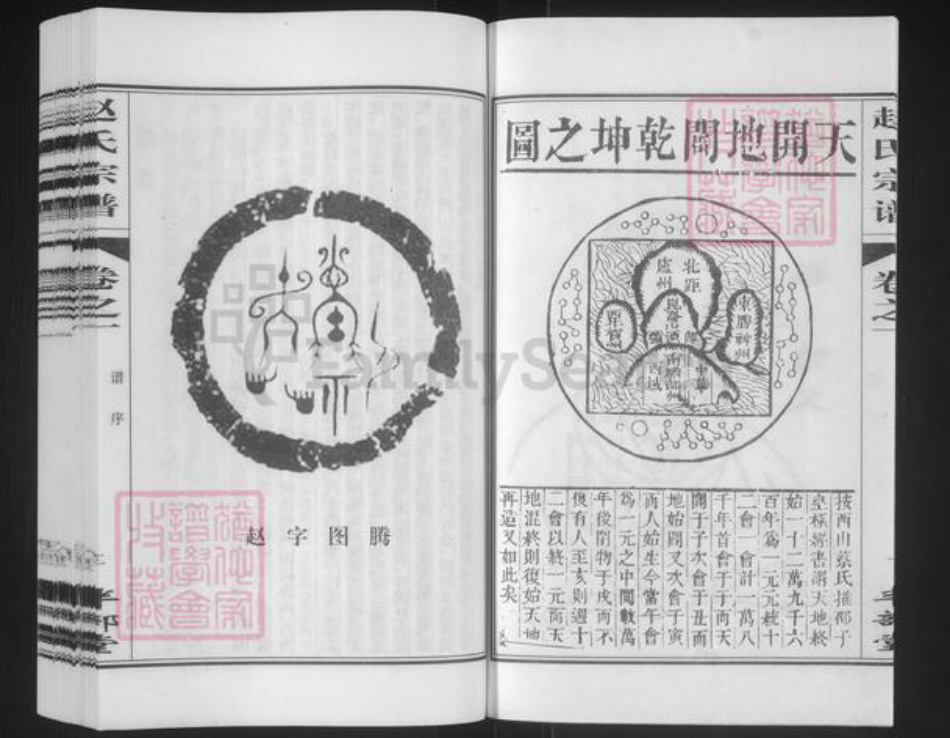 天開地闢乾坤之圖
北距
盧州
崑崙
東勝神州
西域
按西山蔡氏推邵子
皇極經書謂天地終
始一十二萬九千六
百年為一元元統十
二會一會計一萬八
千年首會于子而天
開于子次會于丑而
地始闢又次會于寅
而人始生今當午會
為一元之中閱數萬
年後閉物于戌而不
復有人至亥則週十
二會以終一元而天
地混終則復始天地
再造又如此矣
赵氏宗谱
卷之一
赵字图腾
赵氏宗谱
卷之一
谱序
FamilySearch